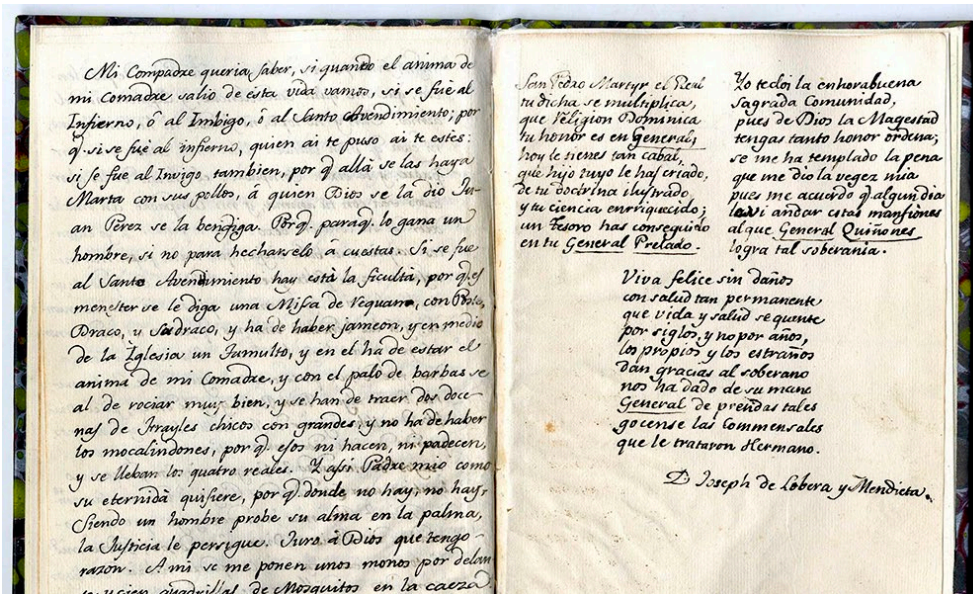 Mi Compadre queria saber, si quando el anima de
mi Comadre salio de esta vida vamos, si se fue al
Infierno, ô al Imbigo, ô al Santo Avendimiento; por
q̃. si se fuè al infierno, quien ai te puso ai te estès:
si se fue al Invigo tambien, por q̃ allà se las haya
Marta con sus pollos, â quien Dios se la dio Ju-
an Perez se la bendiga. Porq̃. paraq̃. lo gana un
hombre, si no para hecharselo â cuestas. Si se fue
al Santo Avendimiento hay està la ficulta, por q̃. es
menester se le diga una Misa de Requane, con
Draco, y Sudraco, y ha de haber jameon, y en medio
de la Iglesia un Tumulto, y en el ha de estar el
anima de mi Comadre, y con el palo de barbas se
al de rociar muy bien, y se han de traer dos doce-
nas de frayles chicos con grandes, y no ha de haber
los mocalindones, por q̃. esos ni hacen, ni padecen,
y se lleban los quatro reales. Y assi Padre mio como
su eternidà quisiere, por q̃. donde no hay, no hay,
Siendo un hombre probe su alma en la palma,
la Justicia le persigue. Juro â Dios que tengo
razon. A mi se me ponen unos monos por delan
cien quadrillas de Mosquitos en la caeza
San Pedro Martyr el Real
tu dicha se multiplica,
que Religion Dominica
tu honor es en General,
hoy le tienes tan cabal,
que hijo tuyo le has criado,
de tu doctrina ilustrado,
y tu ciencia enrriquecido;
un tesoro has conseguido
en tu General Prelado.
Yo te doi la enhorabuena
Sagrada Comunidad,
pues de Dios la Magestad
tengas tanto honor ordena;
se me ha templado la pena
que me dio la vegez mia
pues me acuerdo q̃. algun dia
le vi andar estas mansiones
al que General Quiñones
logra tal soberania.
Viva felice sin daños
con salud tan permanente
que vida y salud se quente
por siglos, y no por años,
los propios y los estraños
dan gracias al soberano
nos ha dado de su mano
General de prendas tales
gocense las Commensales
que le trataron Hermano.
D. Joseph de Lobera y Mendieta.